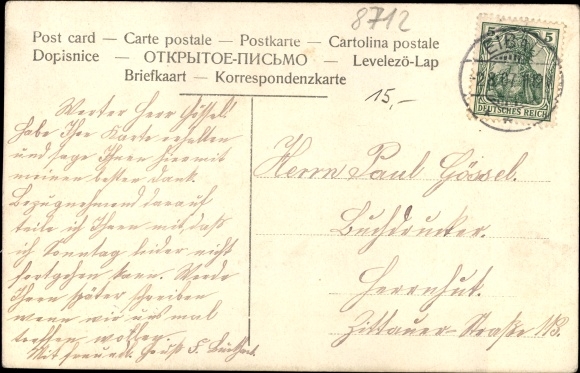 8712
Post card — Carte postale — Postkarte — Cartolina postale
Dopisnice — ОТКРЫТОЕ-ПИСЬМО — Levelezö-Lap
Briefkaart — Korrespondenzkarte
5 5
DEUTSCHES REICH
EIBAU
15,-
Werter Herr Gössel.
Habe Ihre Karte erhalten
und sage Ihnen hiermit
meinen besten Dank.
Bezugnehmend darauf
teile ich Ihnen mit, daß
ich Sonntag leider nicht
fortgehen kann. Werde
Ihnen später schreiben
wenn wir uns mal
treffen wollen.
Mit freundl. Gruß F.
Herrn Paul Gössel.
Buchdrucker.
Herrnhut.
Zittauer-Straße